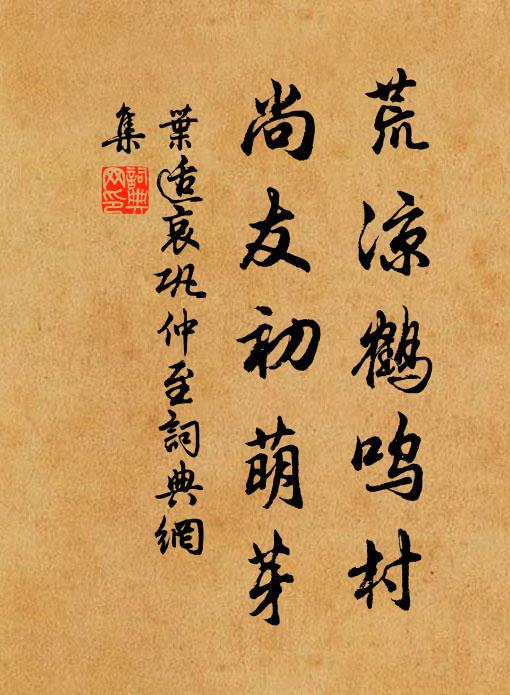 荒凉鶴鸣村
尚友初萌芽
葉适哀巩仲至詞典網
集
詞典網印